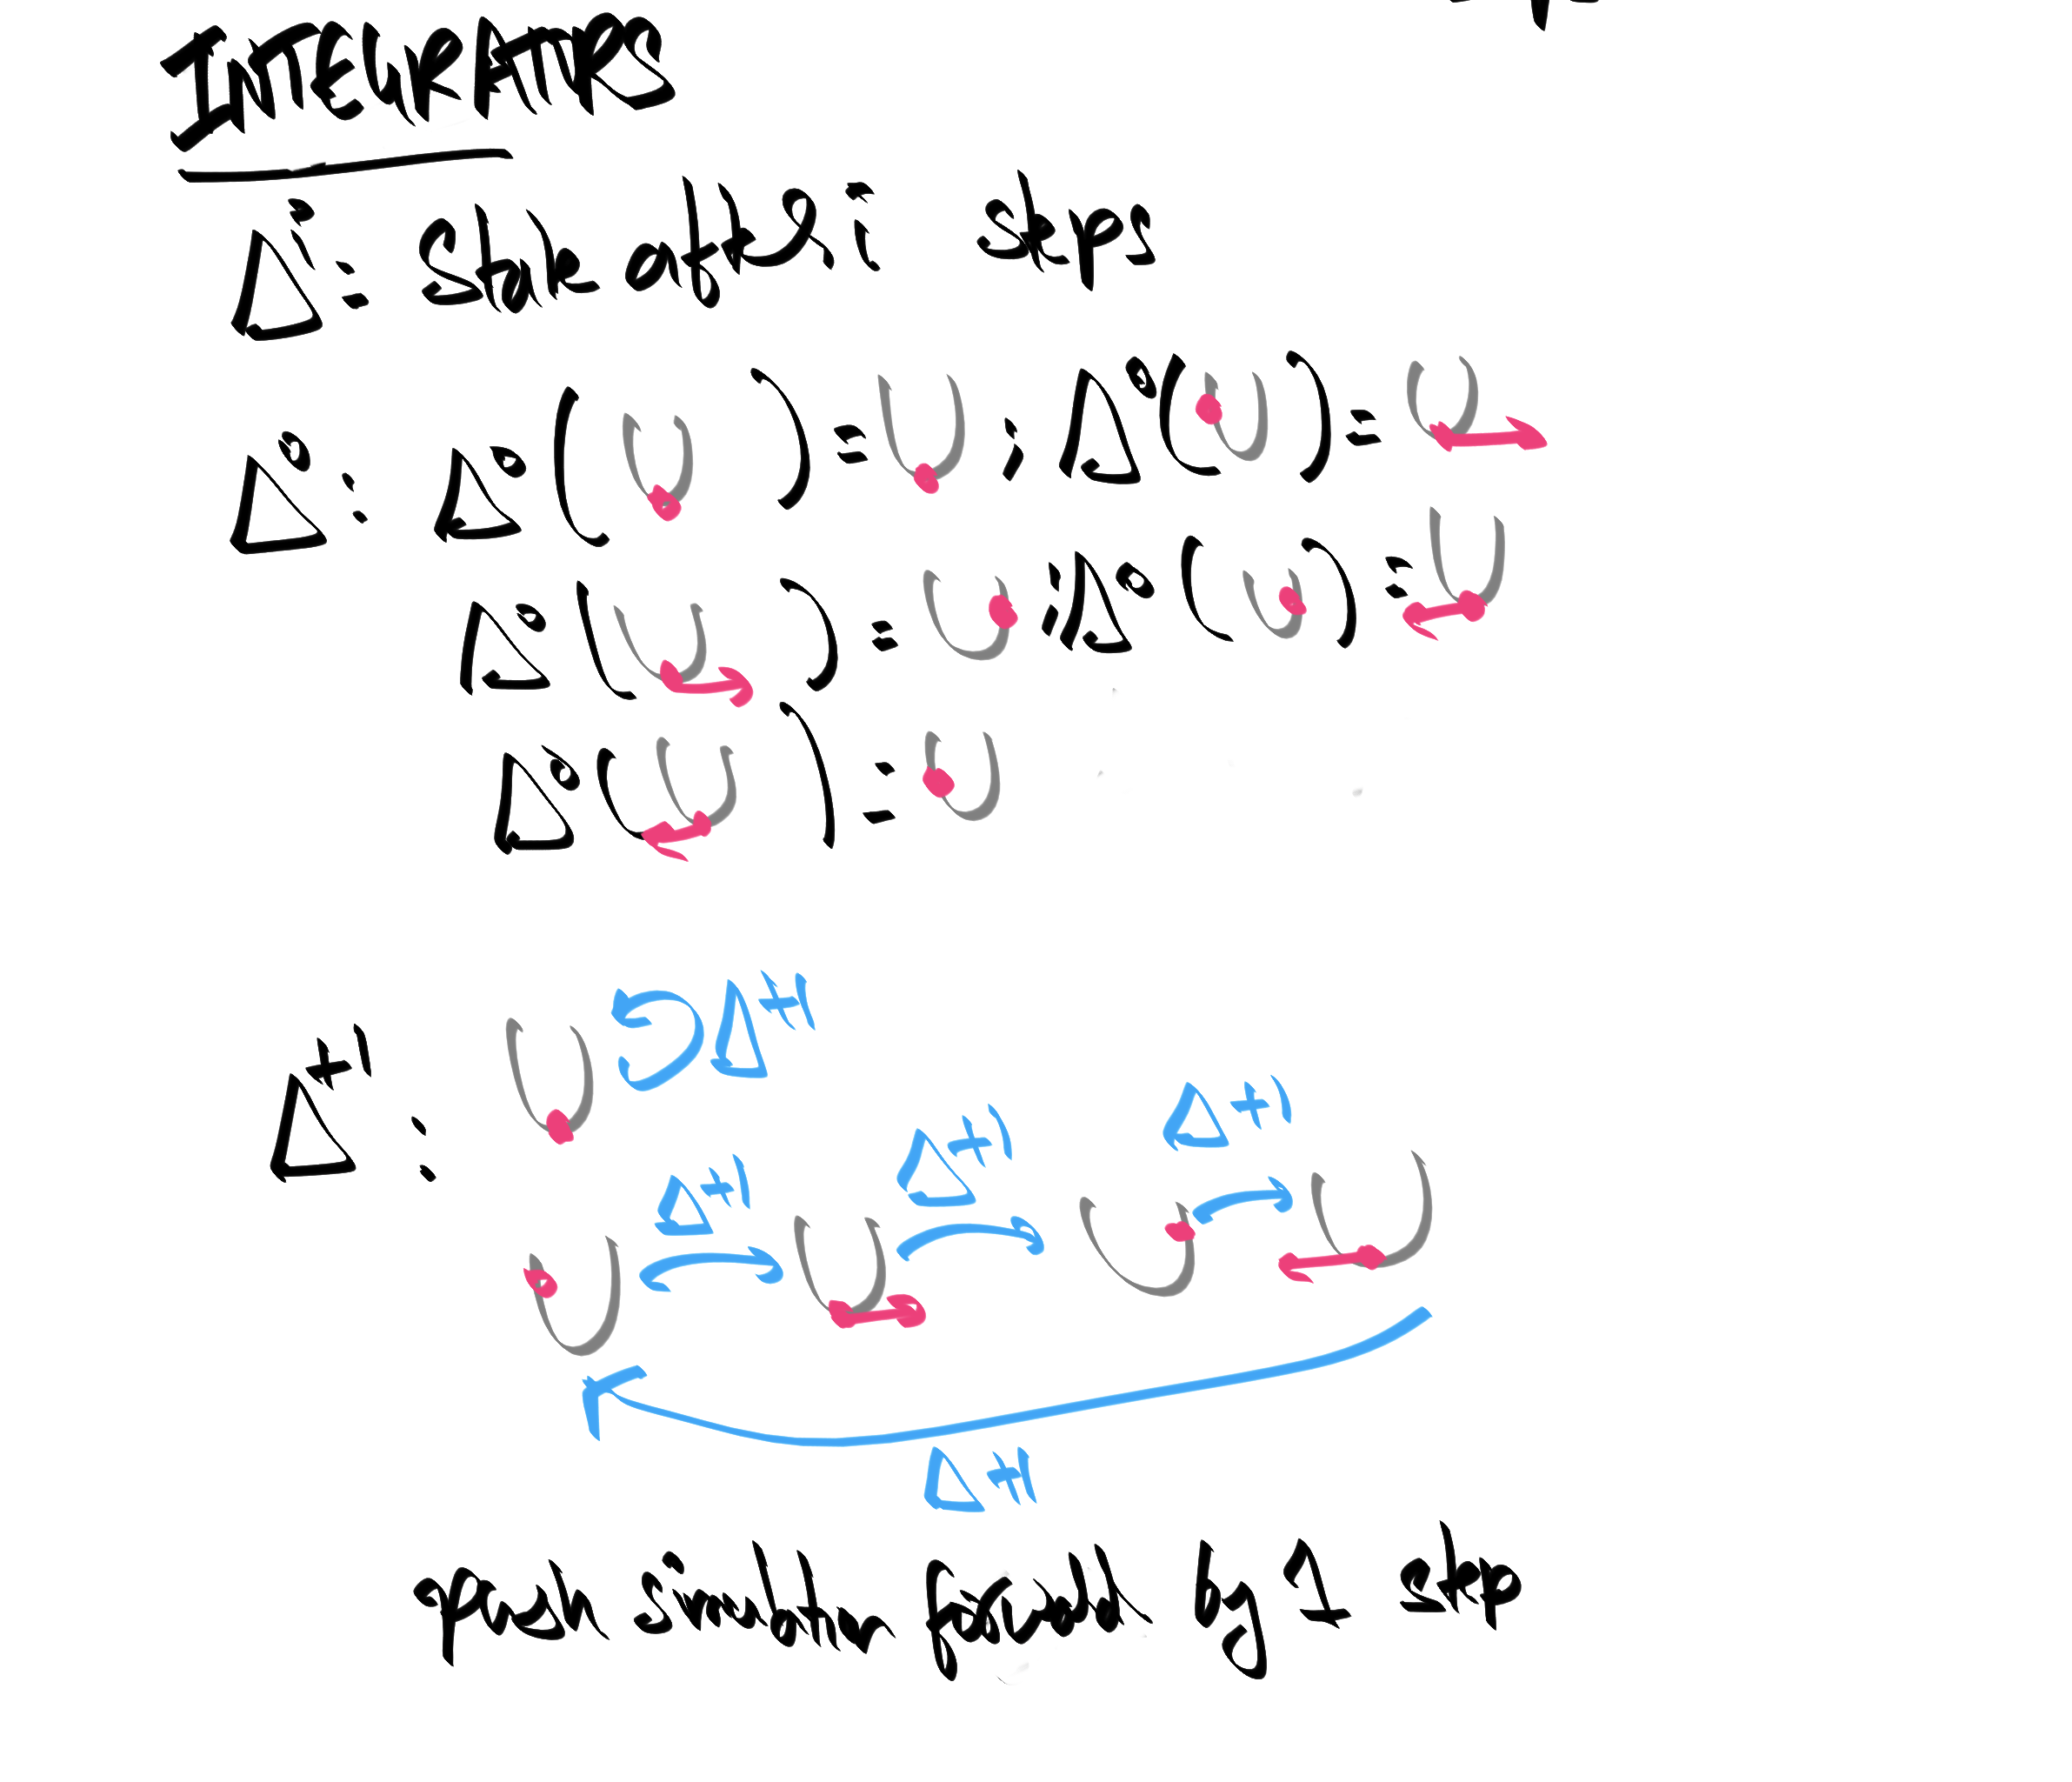 INTEGRATORS
Δⁱ: State after i steps
Δ⁰: Δ⁰( ) = ; Δ⁰( ) =
Δ⁰( ) = ; Δ⁰( ) =
Δ⁰( ) =
Δ⁺¹
Δ⁺¹:
Δ⁺¹
Δ⁺¹
Δ⁺¹
Δ⁺¹
push simulation forward by 1 step